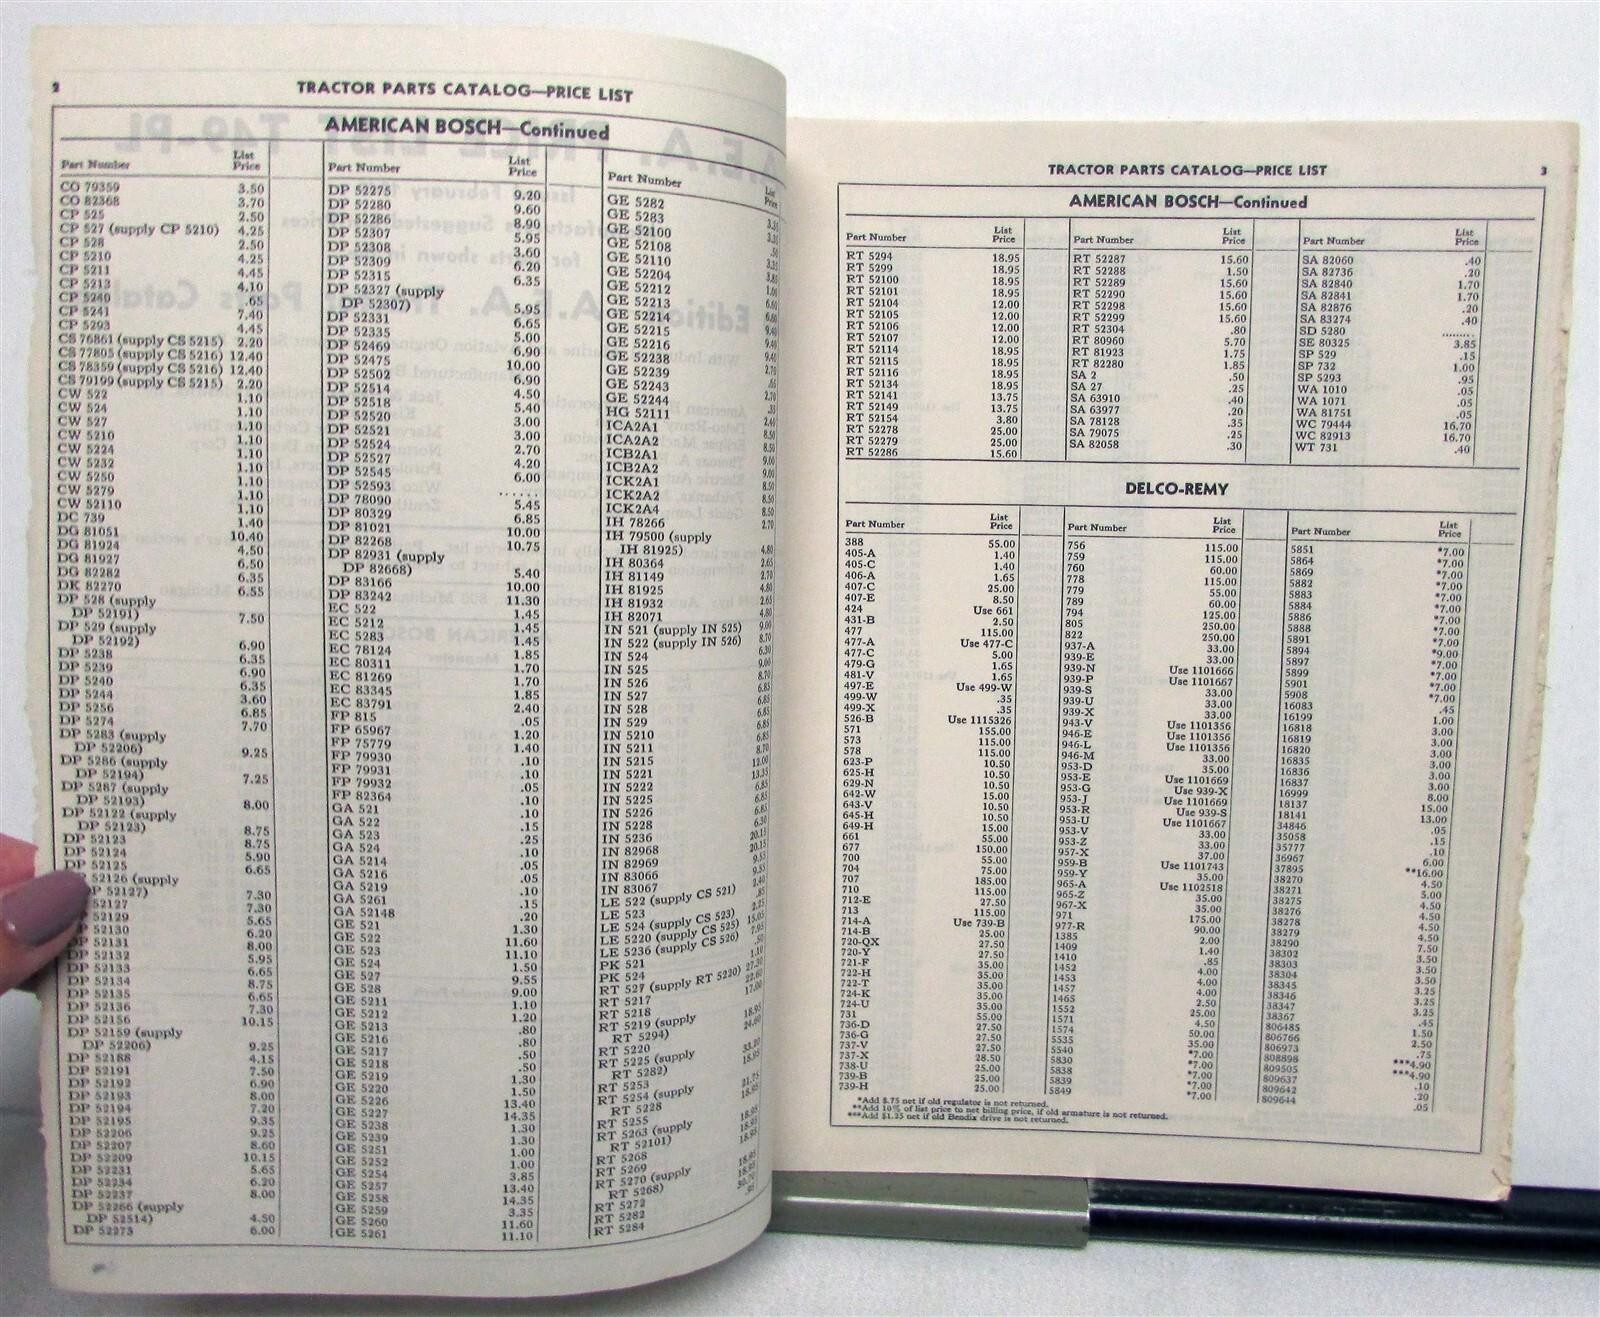 2
TRACTOR PARTS CATALOG—PRICE LIST
AMERICAN BOSCH—Continued
Part Number
CO 79359
CO 82368
CP 525
CP 527 (supply CP 5210)
CP 528
CP 5210
CP 5211
CP 5213
CP 5240
CP 5241
CP 5293
CS 76861 (supply CS 5215)
CS 77805 (supply CS 5216)
CS 78359 (supply CS 5216)
CS 79199 (supply CS 5215)
CW 522
CW 524
CW 527
CW 5210
CW 5224
CW 5232
CW 5250
CW 5279
CW 52110
DC 739
DG 81051
DG 81924
DG 81927
DG 82282
DK 82270
DP 528 (supply
DP 52191)
DP 529 (supply
DP 52192)
DP 5238
DP 5239
DP 5240
DP 5244
DP 5256
DP 5274
DP 5283 (supply
DP 52206)
DP 5286 (supply
DP 52194)
DP 5287 (supply
DP 52193)
DP 52122 (supply
DP 52123)
DP 52123
DP 52124
DP 52125
52126 (supply
DP 52127)
52127
52129
52130
DP 52131
DP 52132
DP 52133
DP 52134
DP 52135
DP 52136
DP 52156
DP 52159 (supply
DP 52206)
DP 52188
DP 52191
DP 52192
DP 52193
DP 52194
DP 52195
DP 52206
DP 52207
DP 52209
DP 52231
DP 52234
DP 52237
DP 52266 (supply
DP 52514)
DP 52273
List
Price
3.50
3.70
2.50
4.25
2.50
4.25
4.45
4.10
.65
7.40
4.45
2.20
12.40
12.40
2.20
1.10
1.10
1.10
1.10
1.10
1.10
1.10
1.10
1.10
1.40
10.40
4.50
6.50
6.35
6.55
7.50
6.90
6.35
6.90
6.35
3.60
6.85
7.70
9.25
7.25
8.00
8.75
8.75
5.90
6.65
7.30
7.30
5.65
6.20
8.00
5.95
6.65
8.75
6.65
7.30
10.15
9.25
4.15
7.50
6.90
8.00
7.20
9.35
9.25
8.60
10.15
5.65
6.20
8.00
4.50
6.00
Part Number
DP 52275
DP 52280
DP 52286
DP 52307
DP 52308
DP 52309
DP 52315
DP 52327 (supply
DP 52307)
DP 52331
DP 52335
DP 52469
DP 52475
DP 52502
DP 52514
DP 52518
DP 52520
DP 52521
DP 52524
DP 52527
DP 52545
DP 52593
DP 78090
DP 80329
DP 81021
DP 82268
DP 82931 (supply
DP 82668)
DP 83166
DP 83242
EC 522
EC 5212
EC 5283
EC 78124
EC 80311
EC 81269
EC 83345
EC 83791
FP 815
FP 65967
FP 75779
FP 79930
FP 79931
FP 79932
FP 82364
GA 521
GA 522
GA 523
GA 524
GA 5214
GA 5216
GA 5219
GA 5261
GA 52148
GE 521
GE 522
GE 523
GE 524
GE 527
GE 528
GE 5211
GE 5212
GE 5213
GE 5216
GE 5217
GE 5218
GE 5219
GE 5220
GE 5226
GE 5227
GE 5238
GE 5239
GE 5251
GE 5252
GE 5254
GE 5257
GE 5258
GE 5259
GE 5260
GE 5261
List
Price
9.20
9.60
8.90
5.95
3.60
6.20
6.35
5.95
6.65
5.00
6.90
10.00
6.90
4.50
5.40
3.00
3.00
2.70
4.20
6.00
......
5.45
6.85
10.00
10.75
5.40
10.00
11.30
1.45
1.45
1.45
1.85
1.70
1.70
1.85
2.40
.05
1.20
1.40
.10
.05
.10
.10
.15
.25
.10
.05
.10
.15
.20
1.30
11.60
11.10
1.50
9.55
9.00
1.10
1.20
.80
.80
.50
.50
1.30
1.50
13.40
14.35
1.30
1.30
1.00
1.00
3.85
13.40
14.35
3.35
11.60
11.10
Part Number
GE 5282
GE 5283
GE 52100
GE 52108
GE 52110
GE 52204
GE 52212
GE 52213
GE 52214
GE 52215
GE 52216
GE 52238
GE 52239
GE 52243
GE 52244
HG 52111
ICA2A1
ICA2A2
ICB2A1
ICB2A2
ICK2A1
ICK2A2
ICK2A4
IH 78266
IH 79500 (supply
IH 81925)
IH 80364
IH 81149
IH 81925
IH 81932
IH 82071
IN 521 (supply IN 525)
IN 522 (supply IN 526)
IN 524
IN 525
IN 526
IN 527
IN 528
IN 529
IN 5210
IN 5211
IN 5215
IN 5221
IN 5222
IN 5225
IN 5226
IN 5228
IN 5236
IN 82968
IN 82969
IN 83066
IN 83067
LE 522 (supply CS 521)
LE 523
LE 524 (supply CS 523)
LE 5220 (supply CS 525)
LE 5236 (supply CS 526)
PK 521
PK 524
RT 527 (supply RT 5220)
RT 5217
RT 5218
RT 5219 (supply
RT 5294)
RT 5220
RT 5225 (supply
RT 5282)
RT 5253
RT 5254 (supply
RT 5228
RT 5255
RT 5263 (supply
RT 52101)
RT 5268
RT 5269
RT 5270 (supply
RT 5268)
RT 5272
RT 5282
RT 5284
List
Price
TRACTOR PARTS CATALOG—PRICE LIST
3
AMERICAN BOSCH—Continued
Part Number
RT 5294
RT 5299
RT 52100
RT 52101
RT 52104
RT 52105
RT 52106
RT 52107
RT 52114
RT 52115
RT 52116
RT 52134
RT 52141
RT 52149
RT 52154
RT 52278
RT 52279
RT 52286
List
Price
18.95
18.95
18.95
18.95
12.00
12.00
12.00
12.00
18.95
18.95
18.95
18.95
13.75
13.75
3.80
25.00
25.00
15.60
Part Number
RT 52287
RT 52288
RT 52289
RT 52290
RT 52298
RT 52299
RT 52304
RT 80960
RT 81923
RT 82280
SA 2
SA 27
SA 63910
SA 63977
SA 78128
SA 79075
SA 82058
List
Price
15.60
1.50
15.60
15.60
15.60
15.60
.80
5.70
1.75
1.85
.50
.25
.40
.20
.35
.25
.30
Part Number
SA 82060
SA 82736
SA 82840
SA 82841
SA 82876
SA 83274
SD 5280
SE 80325
SP 529
SP 732
SP 5293
WA 1010
WA 1071
WA 81751
WC 79444
WC 82913
WT 731
List
Price
.40
.20
1.70
1.70
.20
.40
........
3.85
.15
1.00
.95
.05
.05
.05
16.70
16.70
.40
DELCO-REMY
Part Number
388
405-A
405-C
406-A
407-C
407-E
424
431-B
477
477-A
477-C
479-G
481-V
497-E
499-W
499-X
526-B
571
573
578
623-P
625-H
629-N
642-W
643-V
645-H
649-H
661
677
700
704
707
710
712-E
713
714-A
714-B
720-QX
720-Y
721-F
722-H
722-T
724-K
724-U
731
736-D
736-G
737-V
737-X
738-U
739-B
739-H
List
Price
55.00
1.40
1.40
1.65
25.00
8.50
Use 661
2.50
115.00
Use 477-C
5.00
1.65
1.65
Use 499-W
.35
.35
Use 1115326
155.00
115.00
115.00
10.50
10.50
10.50
15.00
10.50
10.50
15.00
55.00
150.00
55.00
75.00
185.00
115.00
27.50
115.00
Use 739-B
25.00
27.50
27.50
35.00
35.00
35.00
35.00
35.00
55.00
27.50
27.50
27.50
28.50
25.00
25.00
25.00
Part Number
756
759
760
778
779
789
794
805
822
937-A
939-E
939-N
939-P
939-S
939-U
939-X
943-V
946-E
946-L
946-M
953-D
953-E
953-G
953-J
953-R
953-U
953-V
953-Z
957-X
959-B
959-Y
965-A
965-Z
967-X
971
977-R
1385
1409
1410
1452
1453
1457
1465
1552
1571
1574
5535
5540
5830
5838
5839
5849
List
Price
115.00
115.00
60.00
115.00
55.00
60.00
125.00
250.00
250.00
33.00
33.00
Use 1101666
Use 1101667
33.00
33.00
33.00
Use 1101356
Use 1101356
Use 1101356
33.00
35.00
Use 1101669
Use 939-X
Use 1101669
Use 939-S
Use 1101667
33.00
33.00
37.00
Use 1101743
35.00
Use 1102518
35.00
35.00
175.00
90.00
2.00
1.40
.85
4.00
4.00
4.00
2.50
25.00
4.50
50.00
35.00
*7.00
*7.00
*7.00
*7.00
*7.00
Part Number
5851
5864
5869
5882
5883
5884
5886
5888
5891
5894
5897
5899
5901
5908
16083
16199
16818
16819
16820
16835
16836
16837
16999
18137
18141
34846
35058
35777
36967
37895
38270
38271
38275
38276
38278
38279
38290
38302
38303
38304
38345
38346
38347
38367
806485
806766
806973
808898
809505
809637
809642
809644
List
Price
*7.00
*7.00
*7.00
*7.00
*7.00
*7.00
*7.00
*7.00
*7.00
*9.00
*7.00
*7.00
*7.00
*7.00
.45
1.00
3.00
3.00
3.00
3.00
3.00
3.00
8.00
15.00
13.00
.05
.15
.10
6.00
**16.00
4.50
5.00
4.50
4.50
4.50
4.50
7.50
3.50
3.50
3.50
3.25
3.25
3.25
.45
1.50
2.50
.75
***4.90
***4.90
.10
.20
.05
*Add $.75 net if old regulator is not returned.
**Add 10% of list price to net billing price, if old armature is not returned.
***Add $1.25 net if old Bendix drive is not returned.